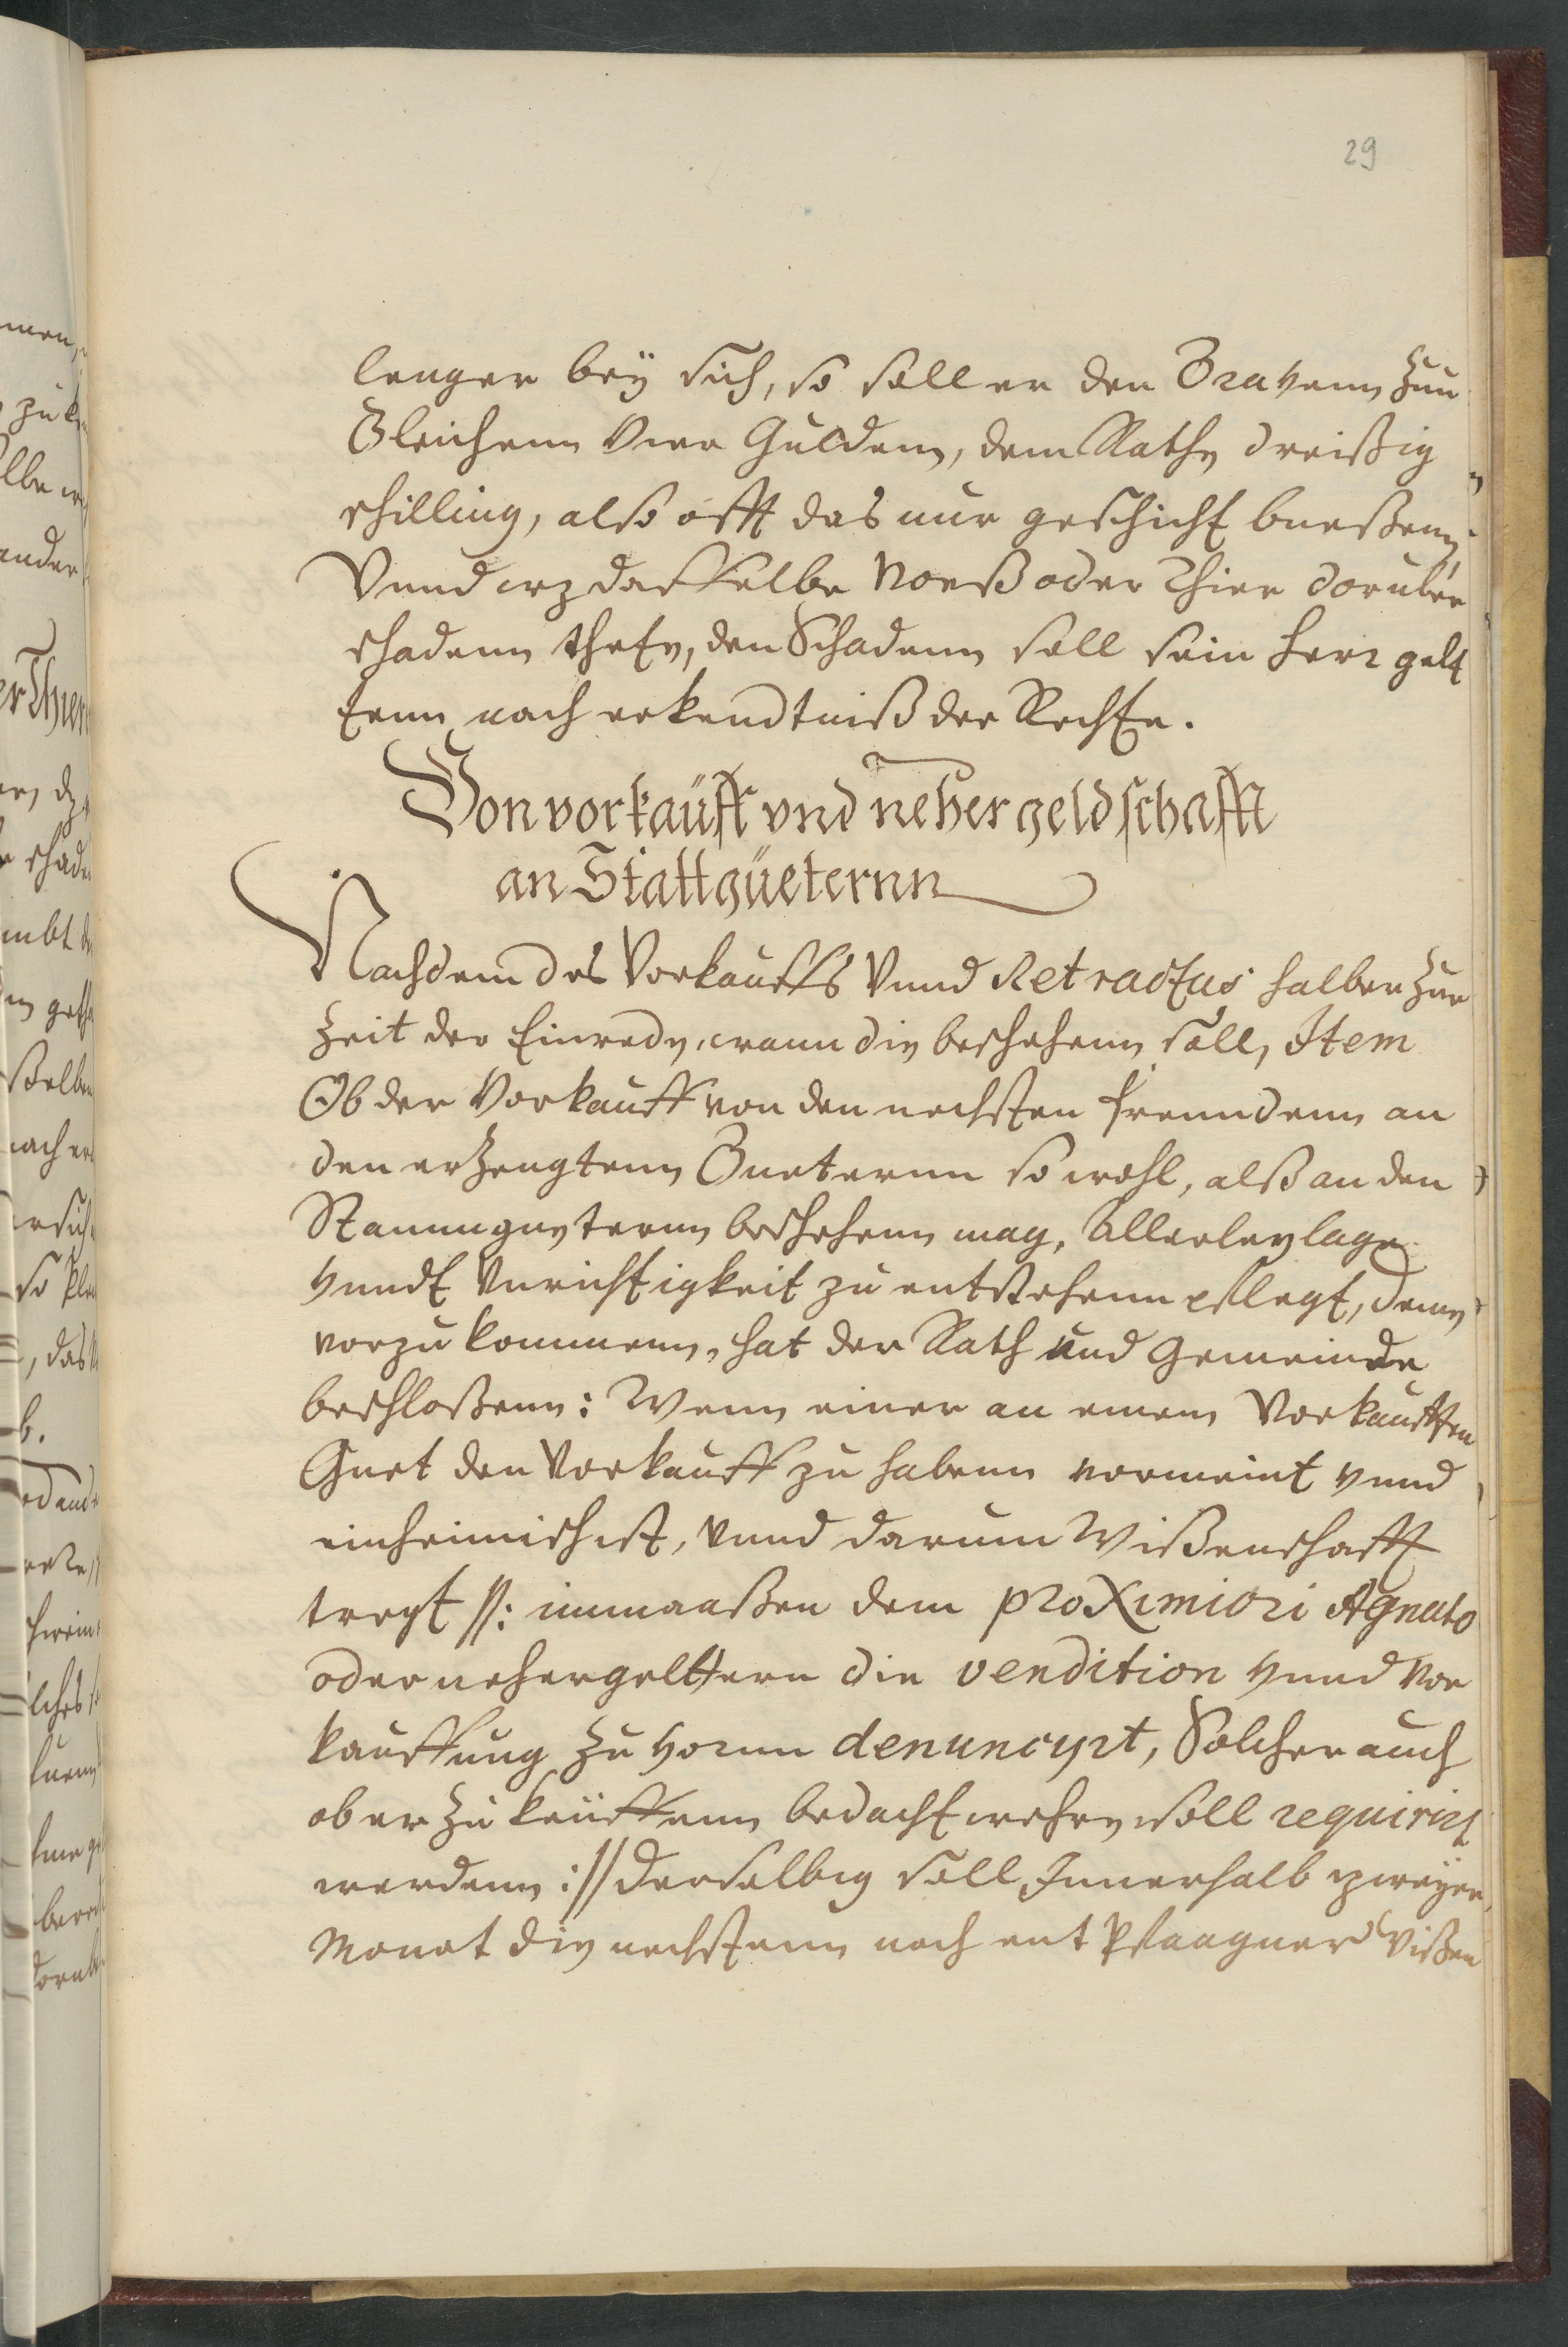 29
lenger beÿ sich, so soll er den Gravenn zun
Gleichenn Vier Guldenn, dem Rathe dreißig
schilling, also offt das nur geschicht bueßenn
Vnnd wz dasselbe Voeß oder Thier doruber
schadenn thete, den Schadenn soll sein Herr gelt
tenn nach erkendtniß der Rechte.
Von vorkaüfft vnd neher geldschafft
an Stattgüeternn
Nachdem des Vorkauffs Vnnd Retractus halber zur
zeit der Einrede, wann die beschehenn soll, Item
Ob der Vorkauff von den nechsten freundenn an
den erzeugtenn Gueternn so wohl, alß an den
Stammgueternn beschehenn mag, Allerley lage
Vnndt Vnrichtigkeit zu entstehenn pflegt, demn
vorzukommenn, hat der Rath und Gemeinde
beschloßenn: Wenn einer an einem Vorkaufften
Guet den Vorkauff zu habenn vormeint vnnd
einheimisch ist, Vnnd darum Wißenschafft
tregt //: inmaaßen dem proximiori Agnato
oder nehergelttern die vendition vnnd Vor
kauffung zu vornn denuncyrt, Solcher auch
ob er zu keüffenn bedacht wehre soll requirirt
werdenn :// derselbig soll Innerhalb zweyer
Monat die nechstenn nach entpfangner Wißen